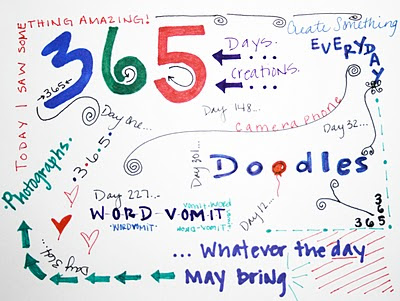 TODAY I SAW SOMETHING AMAZING!
Create Something
EVERYDAY
365
Days.
Creations.
365
Day one...
Day 148...
Camera phone
Day 32...
.3.6.5.
Photographs.
Day 301...
Doodles
Day 227...
WORD VOMIT
"WORDVOMIT"
Day 12...
365
365
Day 364...
... Whatever the day
May bring